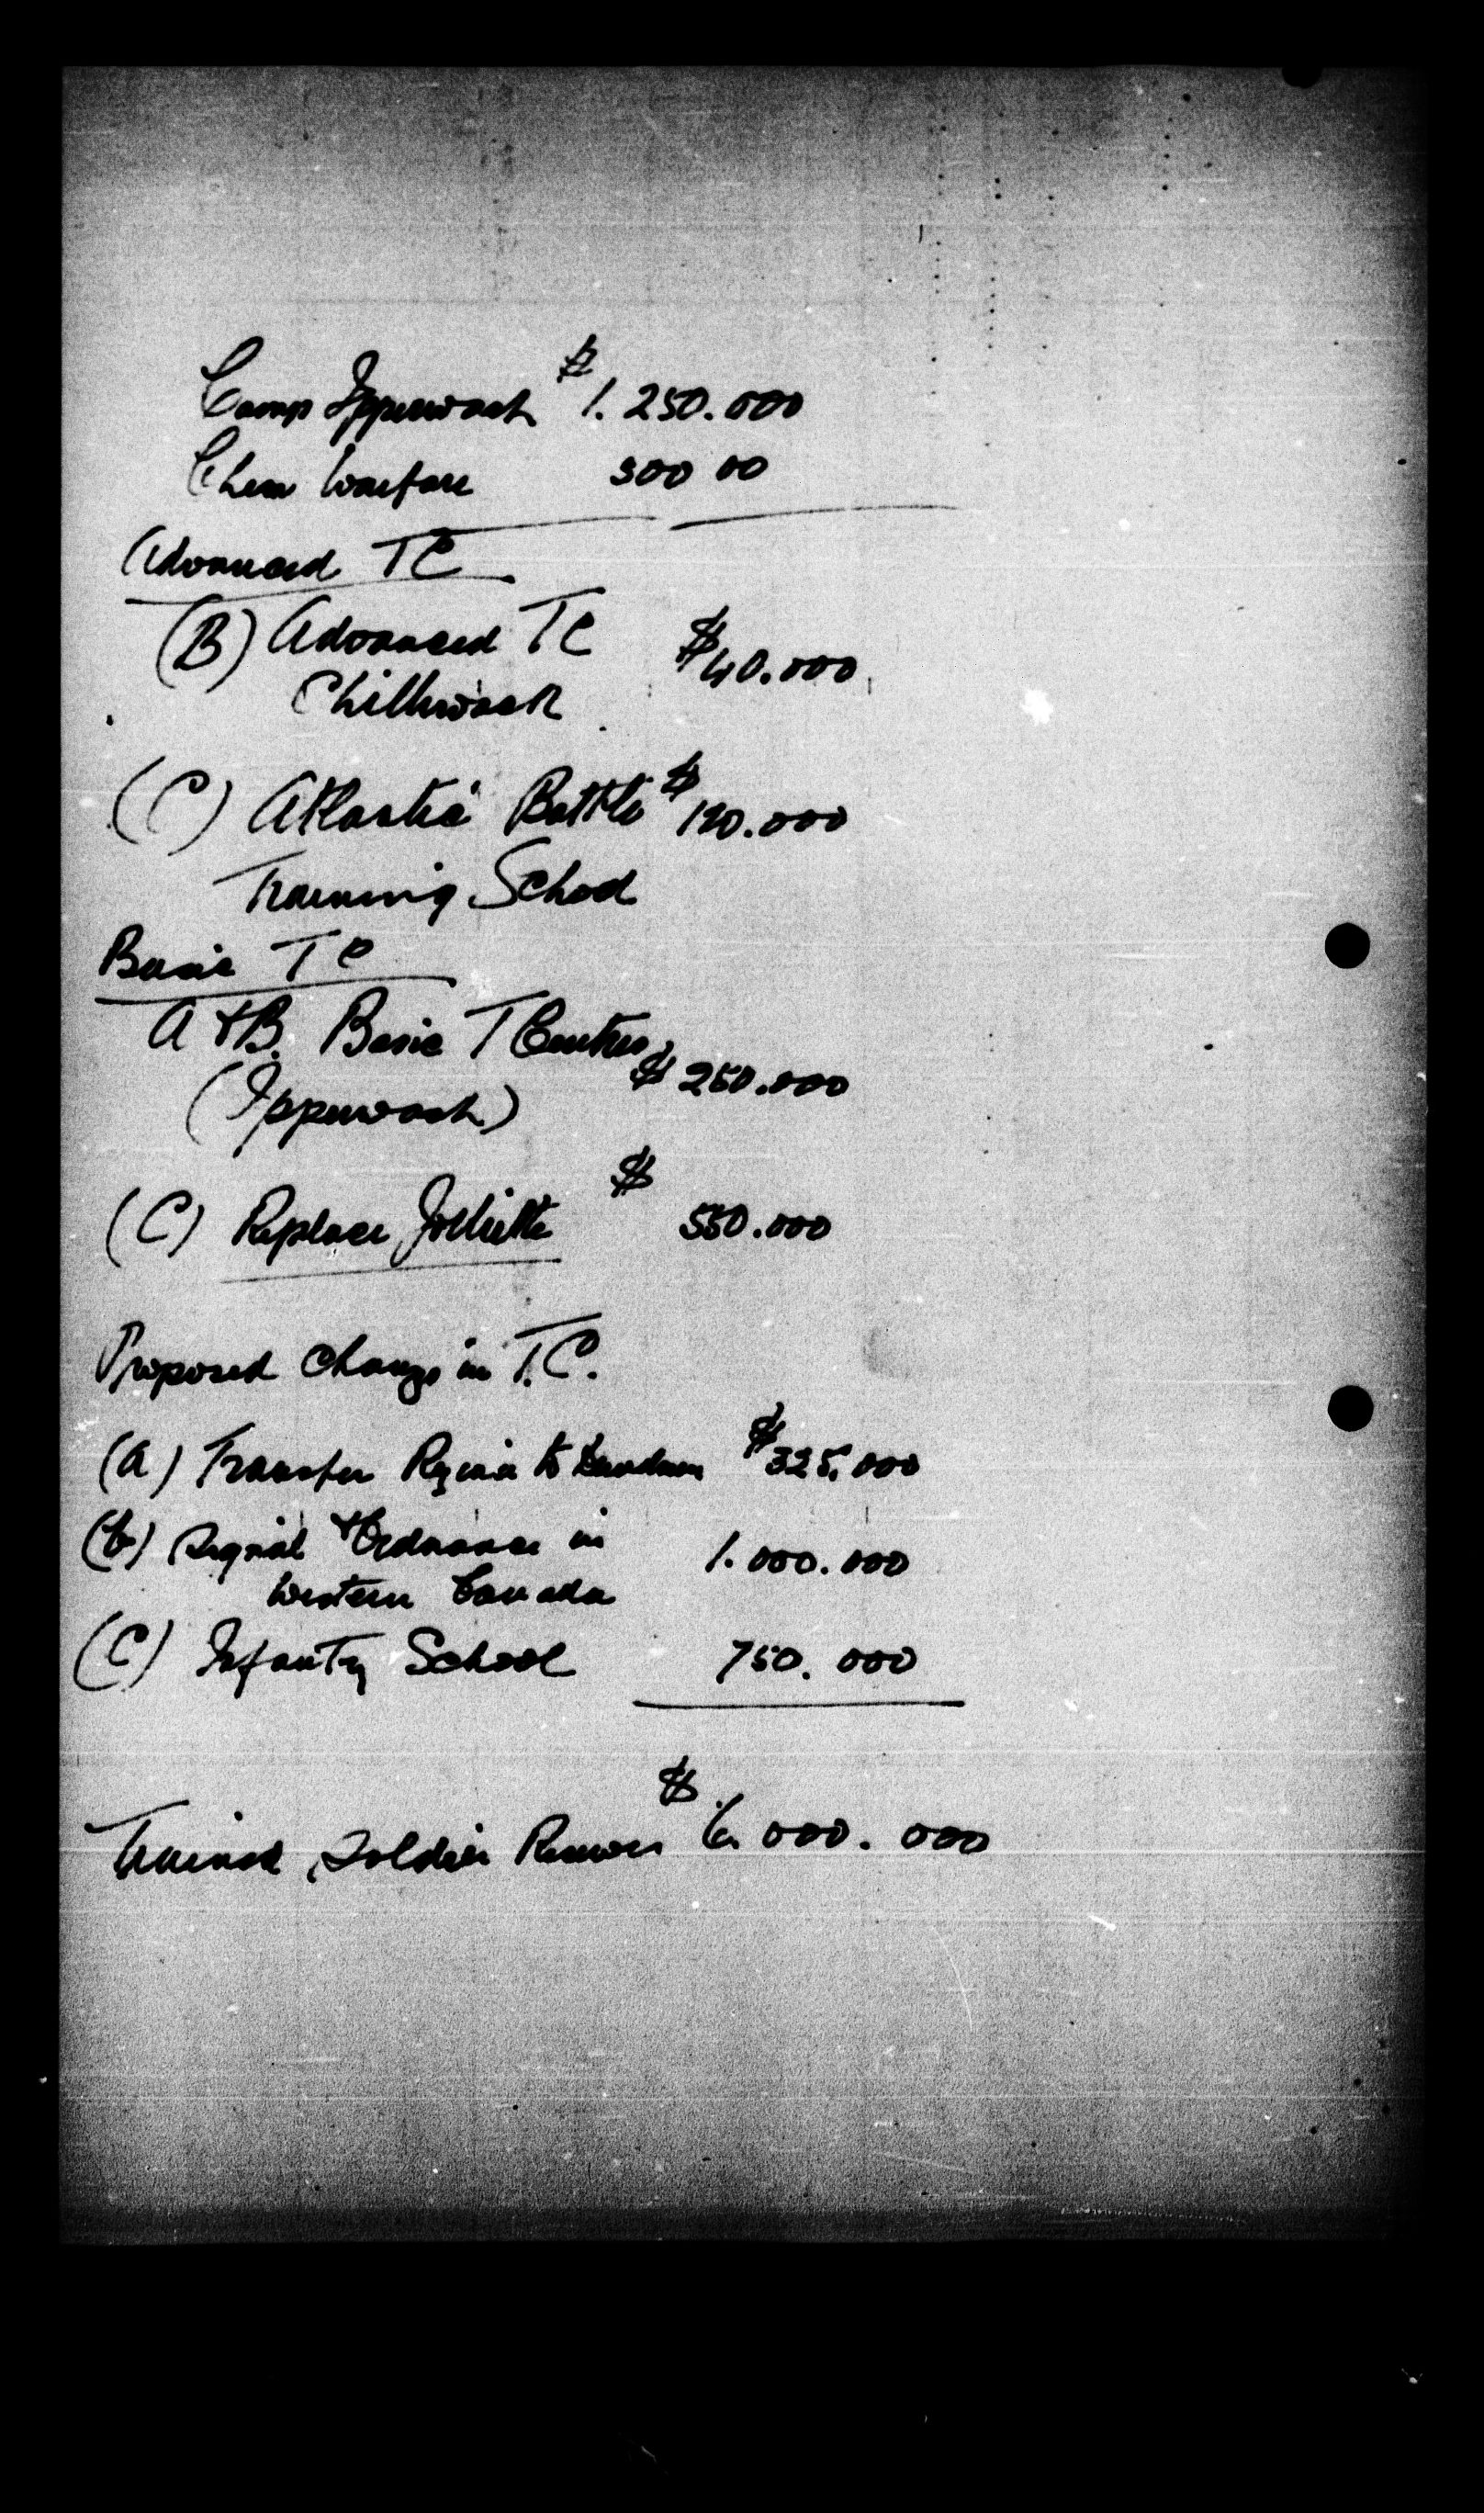 Camp Ipperwash $ 1.250.000
Chem Warfare 300 00
Advanced TC
(B) Advanced TC $40.000
Chilliwack
(C) Atlantic Battle $ 120.000
Training School
Basic TC
A & B. Basic T Centres
(Ipperwash) $ 250.000
(C) Replace Joliette $ 550.000
Proposed Change in T.C.
(a) Transfer Regina to Dundurn $325.000
(b) Signal & Ordnance in 1.000.000
Western Canada
(C) Infantry School 750.000
Trained Soldier Reserves $ 6.000.000